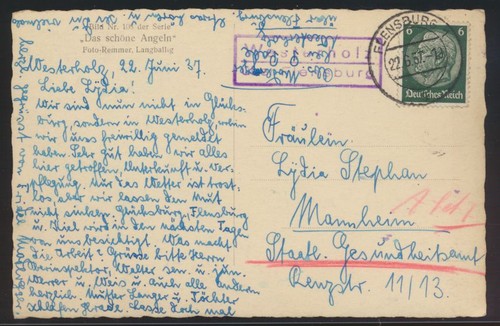 Bild Nr. 103 der Serie:
"Das schöne Angeln"
Foto-Remmer, Langballig
Westerholz, 22. Juni 37.
Liebe Lydia!
Wir sind nun nicht in Glücks-
burg, sondern in Westerholz, wohin
wir uns freiwillig gemeldet
haben. Sehr gut haben wir alles
hier getroffen, Unterkunft u. Ver-
pflegung. Nur das Wetter ist trost-
los, aber wir lassen den Mut
nicht sinken. Glücksburg, Flensburg
u. Kiel wird in den nächsten Tagen
von uns besichtigt. Was macht
die Arbeit? Grüsse bitte Herrn
Oberinspektor, Walter sen. u. jun.
Werrer u. Weis u. auch alle Andern
herzlich. Mutter Langer u. Töchter
schlafen grade, lasse Dich mal
Westerholz
Flensburg
FLENSBURG
22.6.37
6
6
Deutsches Reich
Fräulein
Lydia Stephan
Mannheim
Staatl. Gesundheitsamt
Renzstr. 11/13.